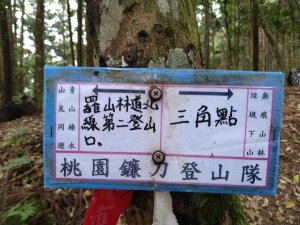 青山綠水
山友同遊
羅山林道北
線第二登山
口。
三角點
無痕山林
垃圾下山
桃園鐮刀登山隊